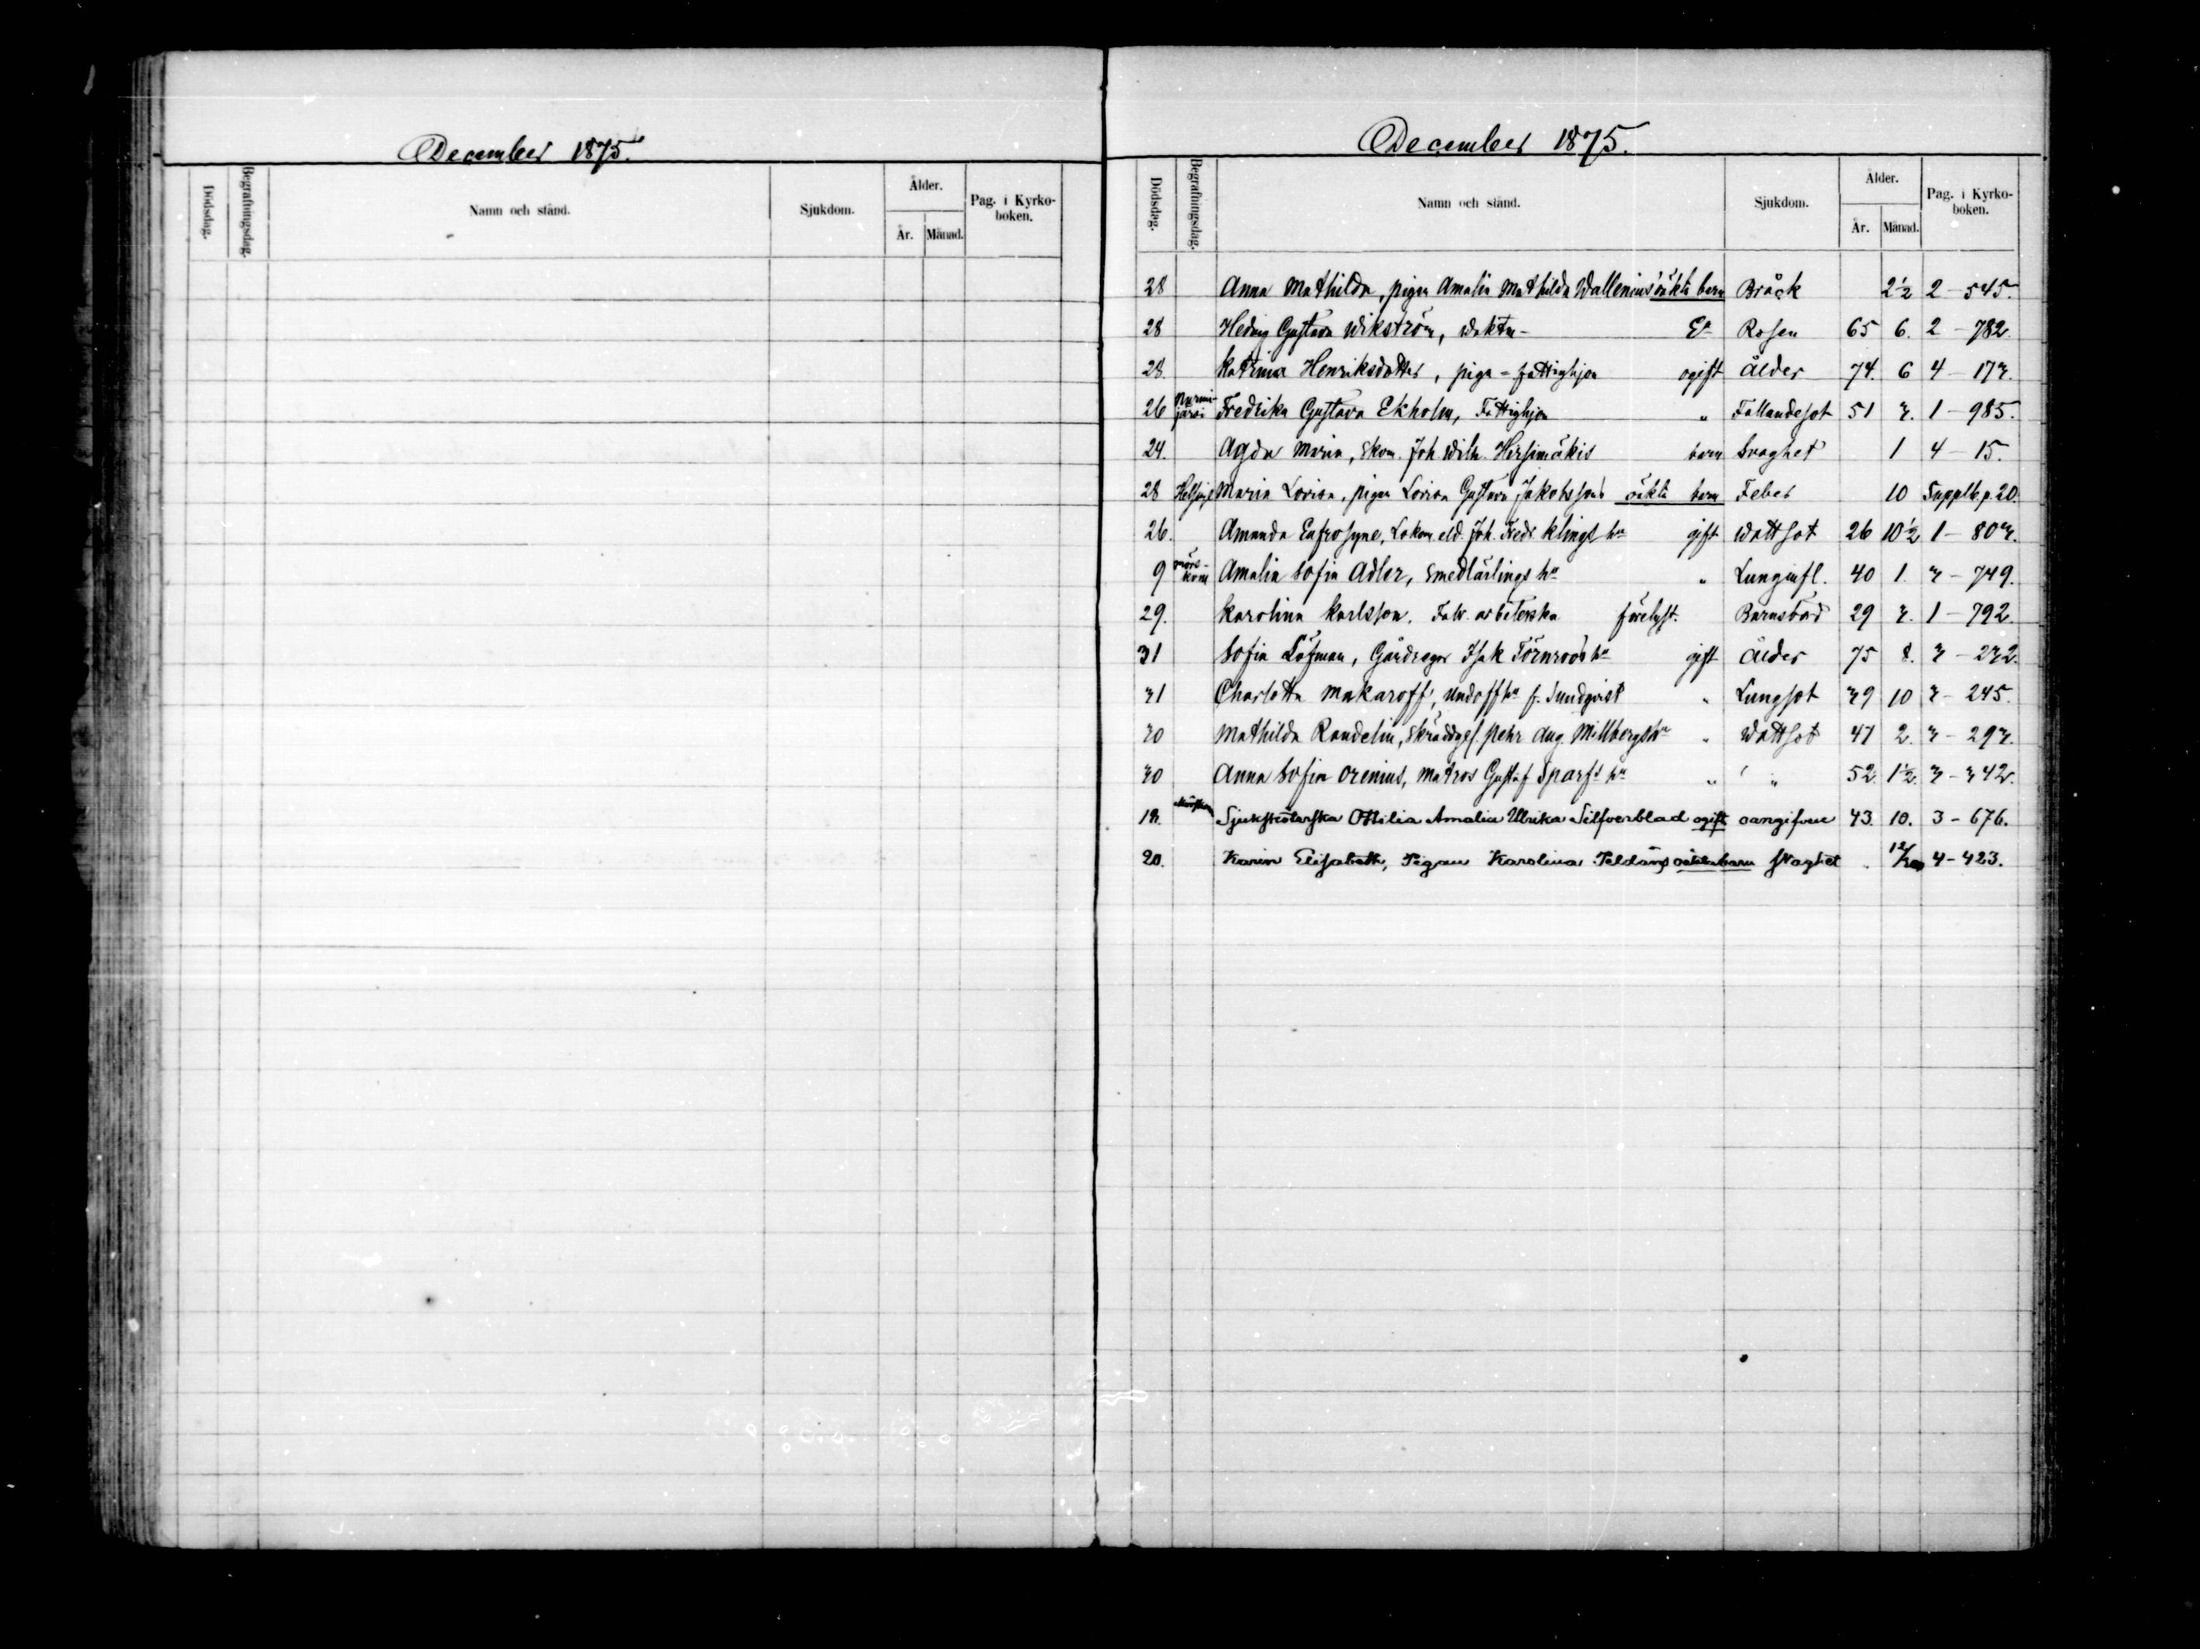 December 1875.
Dödsdag.
Begrafningsdag.
Namn och stånd.
Sjukdom.
Ålder.
År.
Månad.
Pag. i Kyrko-
boken.
December 1875.
Dödsdag.
Begrafningsdag.
Namn och stånd.
Sjukdom.
Ålder.
År.
Månad.
Pag. i Kyrko-
boken.
28 Anna Mathilda, pigan Amalia Mathilda Wallenius' oäkta barn Bråck 2½ 2 - 545.
28 Hedvig Gustava Wikström, Waktm- Ea Rosen 65 6. 2 - 782.
28. Katrina Henriksdotter, piga - fattighjon ogift Ålder 74. 6 4 - 173.
26 Nurmi-
järvi Fredrika Gustava Ekholm, Fattighjon " Fallandesot 51 3. 1 - 985.
24. Agda Maria, Skom. Joh. Wilh. Hirsimäkis barn Svaghet 1 4 - 15.
28 Helsinge Maria Lovisa, pigan Lovisa Gustava Jakobssons oäkta barn Feber 10 Supplb. p. 20.
26. Amanda Eufrosyne, Lokom. eld. Joh. Fredr. Klings hu gift Wattsot 26 10½ 1 - 803.
9 Mörs-
kom Amalia Sofia Adler, Smedlärlings hu " Lunginfl. 40 1. 3 - 749.
29. Karolina Karlsson. Fabr. arbeterska förelyst. Barnsbörd 29 3. 1 - 792.
31 Sofia Löfman, Gårdsegar Isak Törnroos hu gift Ålder 75 8. 3 - 232.
31 Charlotta Makaroff, Undoff hu f. Sundqvist " Lungsot 39 10 3 - 245.
30 Mathilda Randelin, Skräddges. Pehr Aug. Millbergs hu " Wattsot 47 2. 3 - 293.
30 Anna Sofia Orenius, Matros Gustaf Sparfs hu " " 52. 1½. 3 - 342.
13. Mörskom Sjuksköterska Ottilia Amalia Ulrika Silfverblad ogift oangifven 43. 10. 3 - 676.
20. Karin Elisabeth, Pigan Karolina oäkta barn Svaghet 4 - 423.